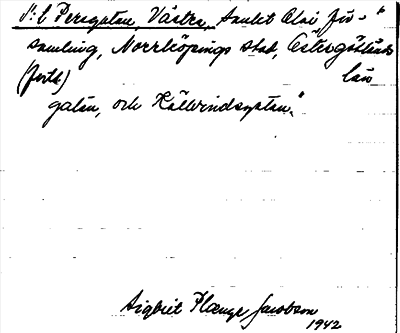 S:t Persgatan, Västra, Sankt Olai för-"
samling, Norrköpings stad, Östergötlands
(forts) län
gatan, och Källvindsgatan."
Sigbrit Plænge Jacobson
1942